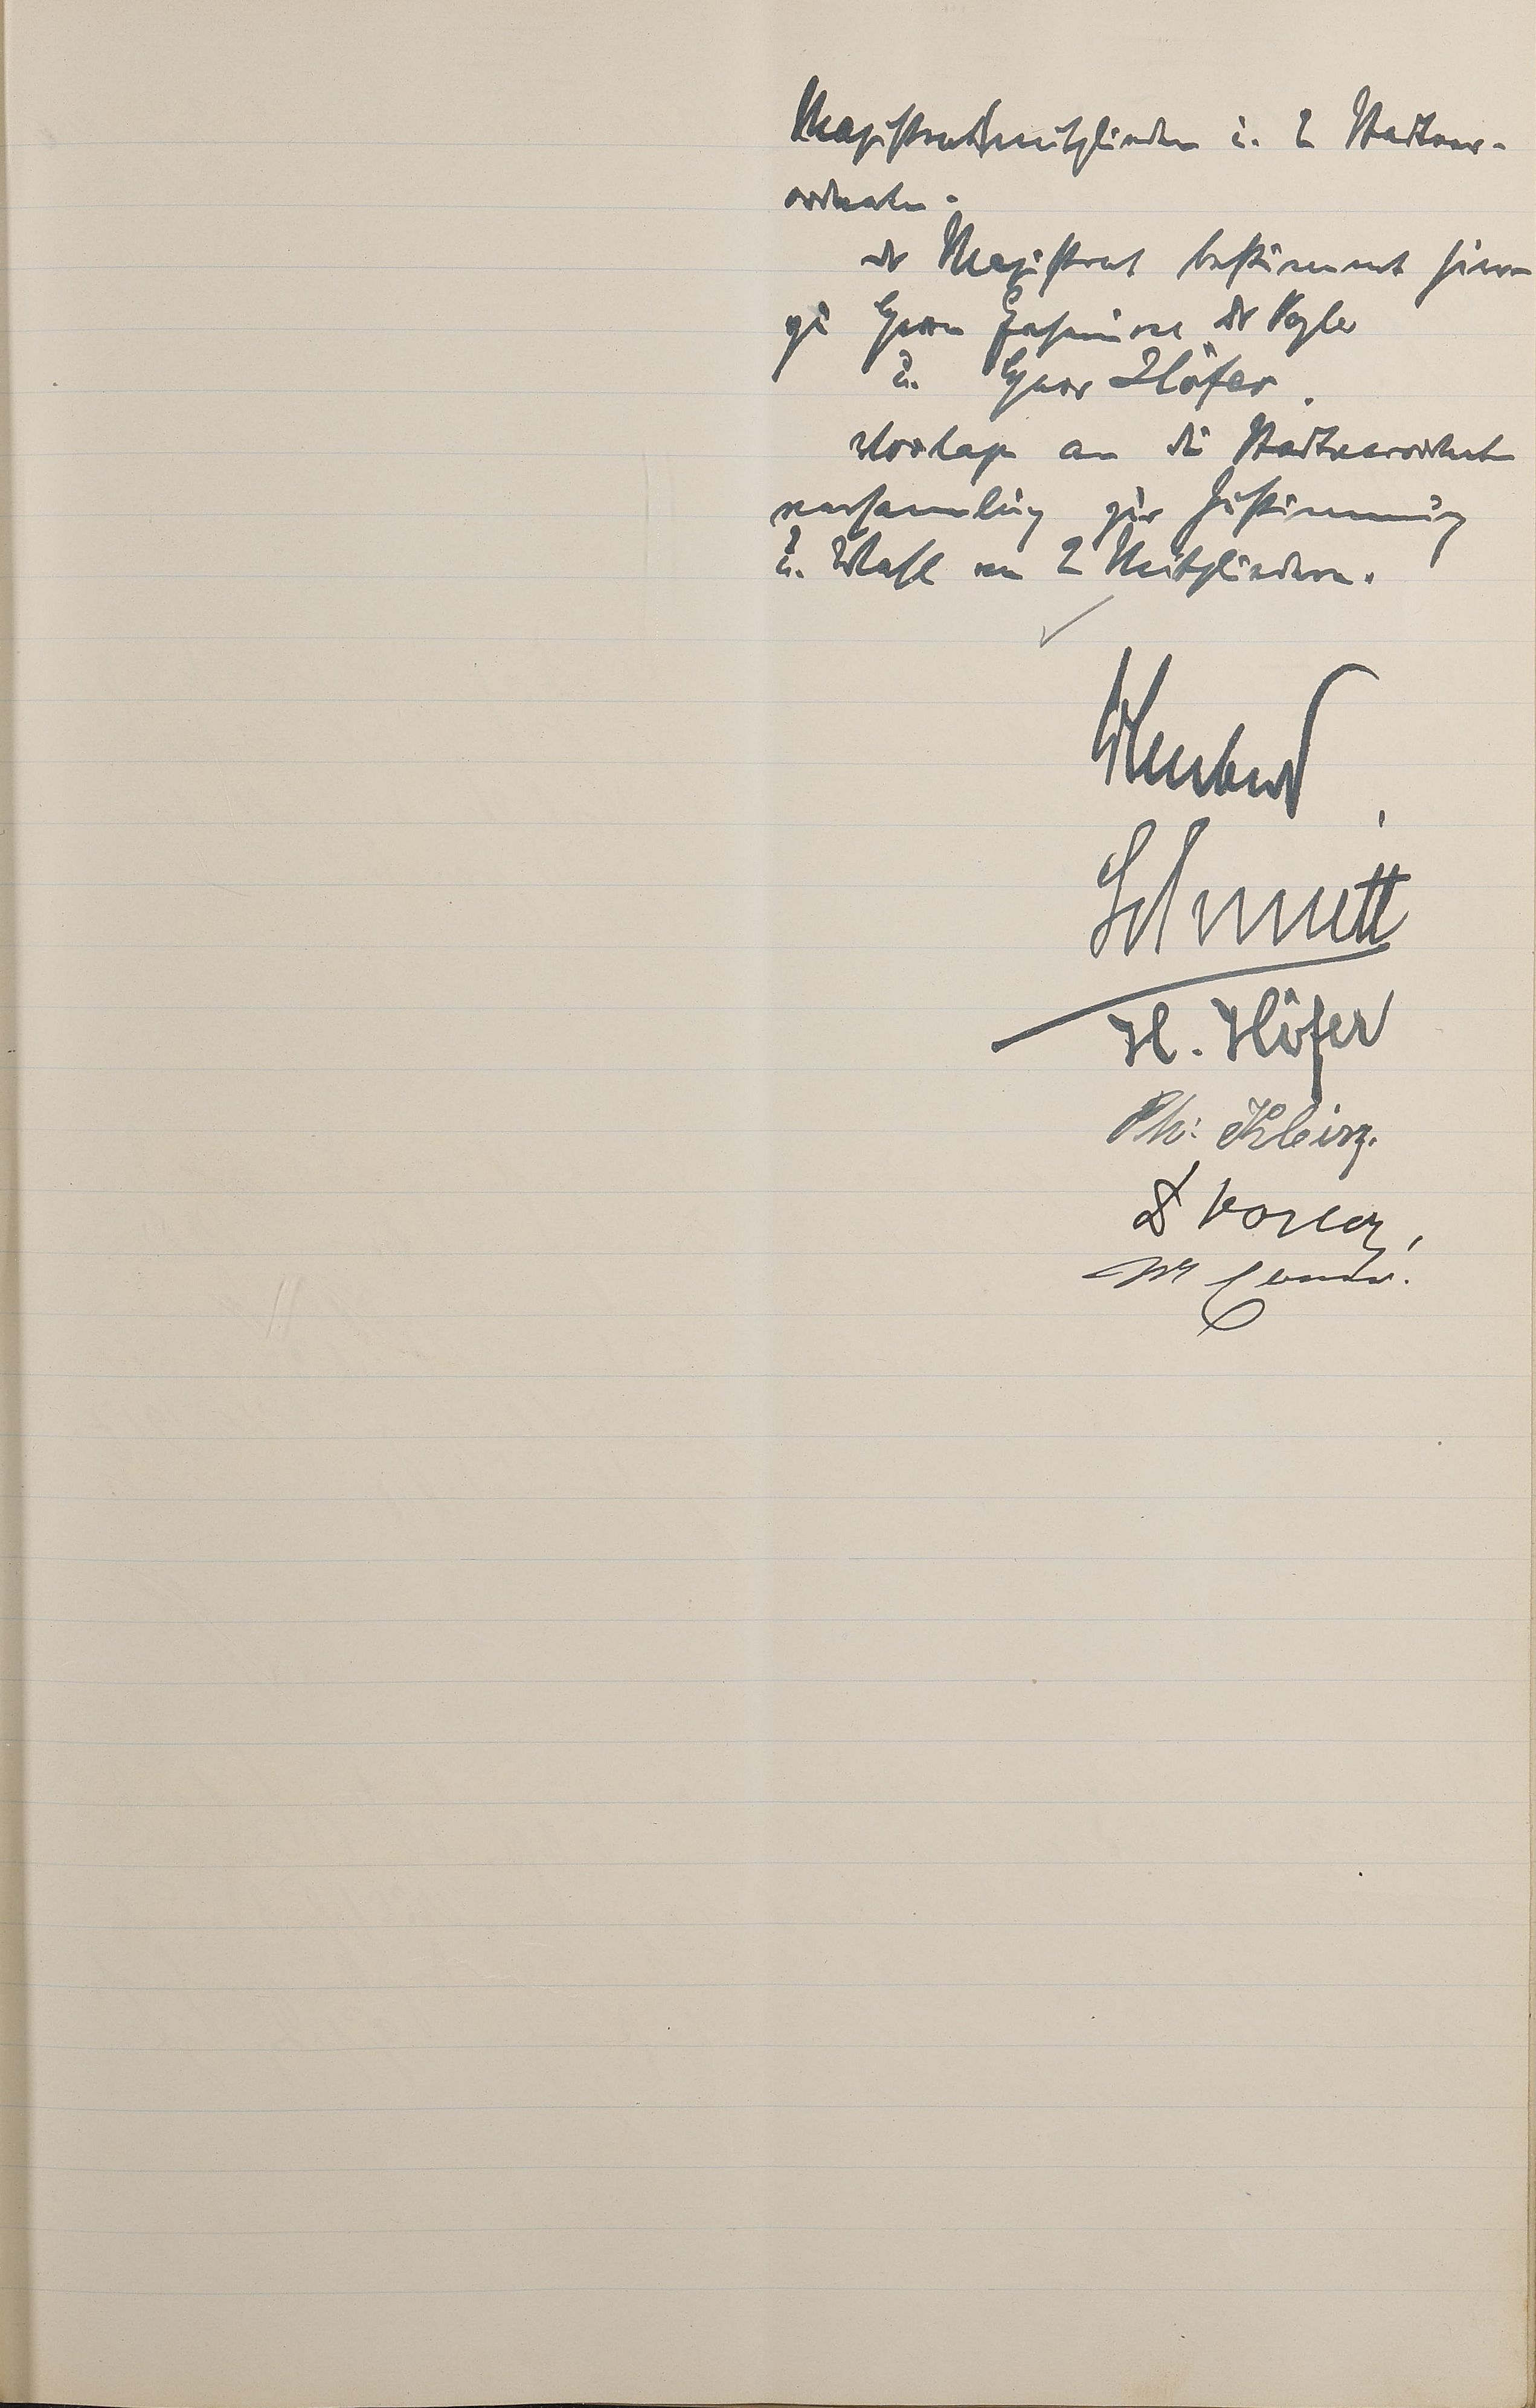 Magistratsmitgliedern u. 2 Stadtver-
ordneten.
der Magistrat bestimmt hier-
zu Herrn Geheimrat Dr Vogler
u. Herrn Höfer.
Vorlage an die Stadtverordneten
versammlung zur Zustimmung
u. Wahl von 2 Mitgliedern.
Schmitt
H. Höfer
Ph: Kleinz.